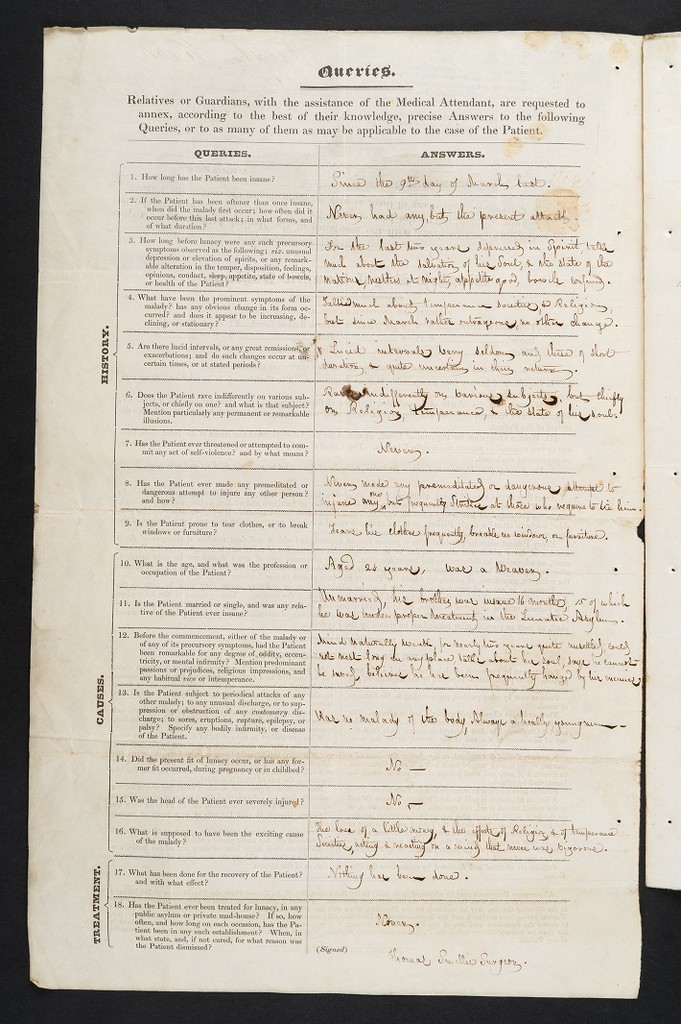 Queries.
Relatives or Guardians, with the assistance of the Medical Attendant, are requested to
annex, according to the best of their knowledge, precise Answers to the following
Queries, or to as many of them as may be applicable to the case of the Patient.
QUERIES.
ANSWERS.
HISTORY.
1. How long has the Patient been insane?
Since the 9th day of March last.
2. If the Patient has been oftener than once insane,
when did the malady first occur; how often did it
occur before this last attack; in what forms, and
of what duration?
Never had any, but the present attack.
3. How long before lunacy were any such precursory
symptoms observed as the following; viz. unusual
depression or elevation of spirits, or any remark-
able alteration in the temper, disposition, feelings,
opinions, conduct, sleep, appetite, state of bowels,
or health of the Patient?
For the last two years depressed in Spirit talks
much about the salvation of his Soul, & the state of the
nations, restless at night, appetite good, bowels confined.
4. What have been the prominent symptoms of the
malady? has any obvious change in its form oc-
curred? and does it appear to be increasing, de-
clining, or stationary?
Talked much about temperance societies, & Religion,
but since March rather outrageous, no other change.
5. Are there lucid intervals, or any great remissions, or
exacerbations; and do such changes occur at un-
certain times, or at stated periods?
Lucid intervals very seldom and these of short
duration, & quite uncertain in their return.
6. Does the Patient rave indifferently on various sub-
jects, or chiefly on one? and what is that subject?
Mention particularly any permanent or remarkable
illusions.
Raves indifferently on various subjects, but chiefly
on Religion, temperance, & the state of his soul.
7. Has the Patient ever threatened or attempted to com-
mit any act of self-violence? and by what means?
Never.
8. Has the Patient ever made any premeditated or
dangerous attempt to injure any other person?
and how?
Never made any premeditated or dangerous attempt to
injure any one, but frequently strikes at those who require to tie him.
9. Is the Patient prone to tear clothes, or to break
windows or furniture?
Tears his clothes frequently, breaks no windows, or furniture.
CAUSES.
10. What is the age, and what was the profession or
occupation of the Patient?
Aged 24 years, was a Weaver.
11. Is the Patient married or single, and was any rela-
tive of the Patient ever insane?
Unmarried, his brother was insane 16 months, 15 of which
he was under proper treatment in the Lunatic Asylum.
12. Before the commencement, either of the malady or
of any of its precursory symptoms, had the Patient
been remarkable for any degree of oddity, eccen-
tricity, or mental infirmity? Mention predominant
passions or prejudices, religious impressions, and
any habitual vice or intemperance.
Mind naturally weak, for nearly two years quite unsettled, could
not rest long in any place, talks about his soul, says he cannot
be saved, believes he has been frequently hanged by his enemies
13. Is the Patient subject to periodical attacks of any
other malady; to any unusual discharge, or to sup-
pression or obstruction of any customary dis-
charge; to sores, eruptions, rupture, epilepsy, or
palsy? Specify any bodily infirmity, or disease
of the Patient.
Has no malady of the body, Always a healthy young man
14. Did the present fit of lunacy occur, or has any for-
mer fit occurred, during pregnancy or in childbed?
No —
15. Was the head of the Patient ever severely injured?
No —
16. What is supposed to have been the exciting cause
of the malady?
The loss of a little money, & the effects of Religion & of temperance
Societies, acting & reacting on a mind that never was vigorous.
TREATMENT.
17. What has been done for the recovery of the Patient?
and with what effect?
Nothing has been done.
18. Has the Patient ever been treated for lunacy, in any
public asylum or private mad-house? If so, how
often, and how long on each occasion, has the Pa-
tient been in any such establishment? When, in
what state, and, if not cured, for what reason was
the Patient dismissed?
Never.
(Signed)
Thomas Smillie Surgeon.